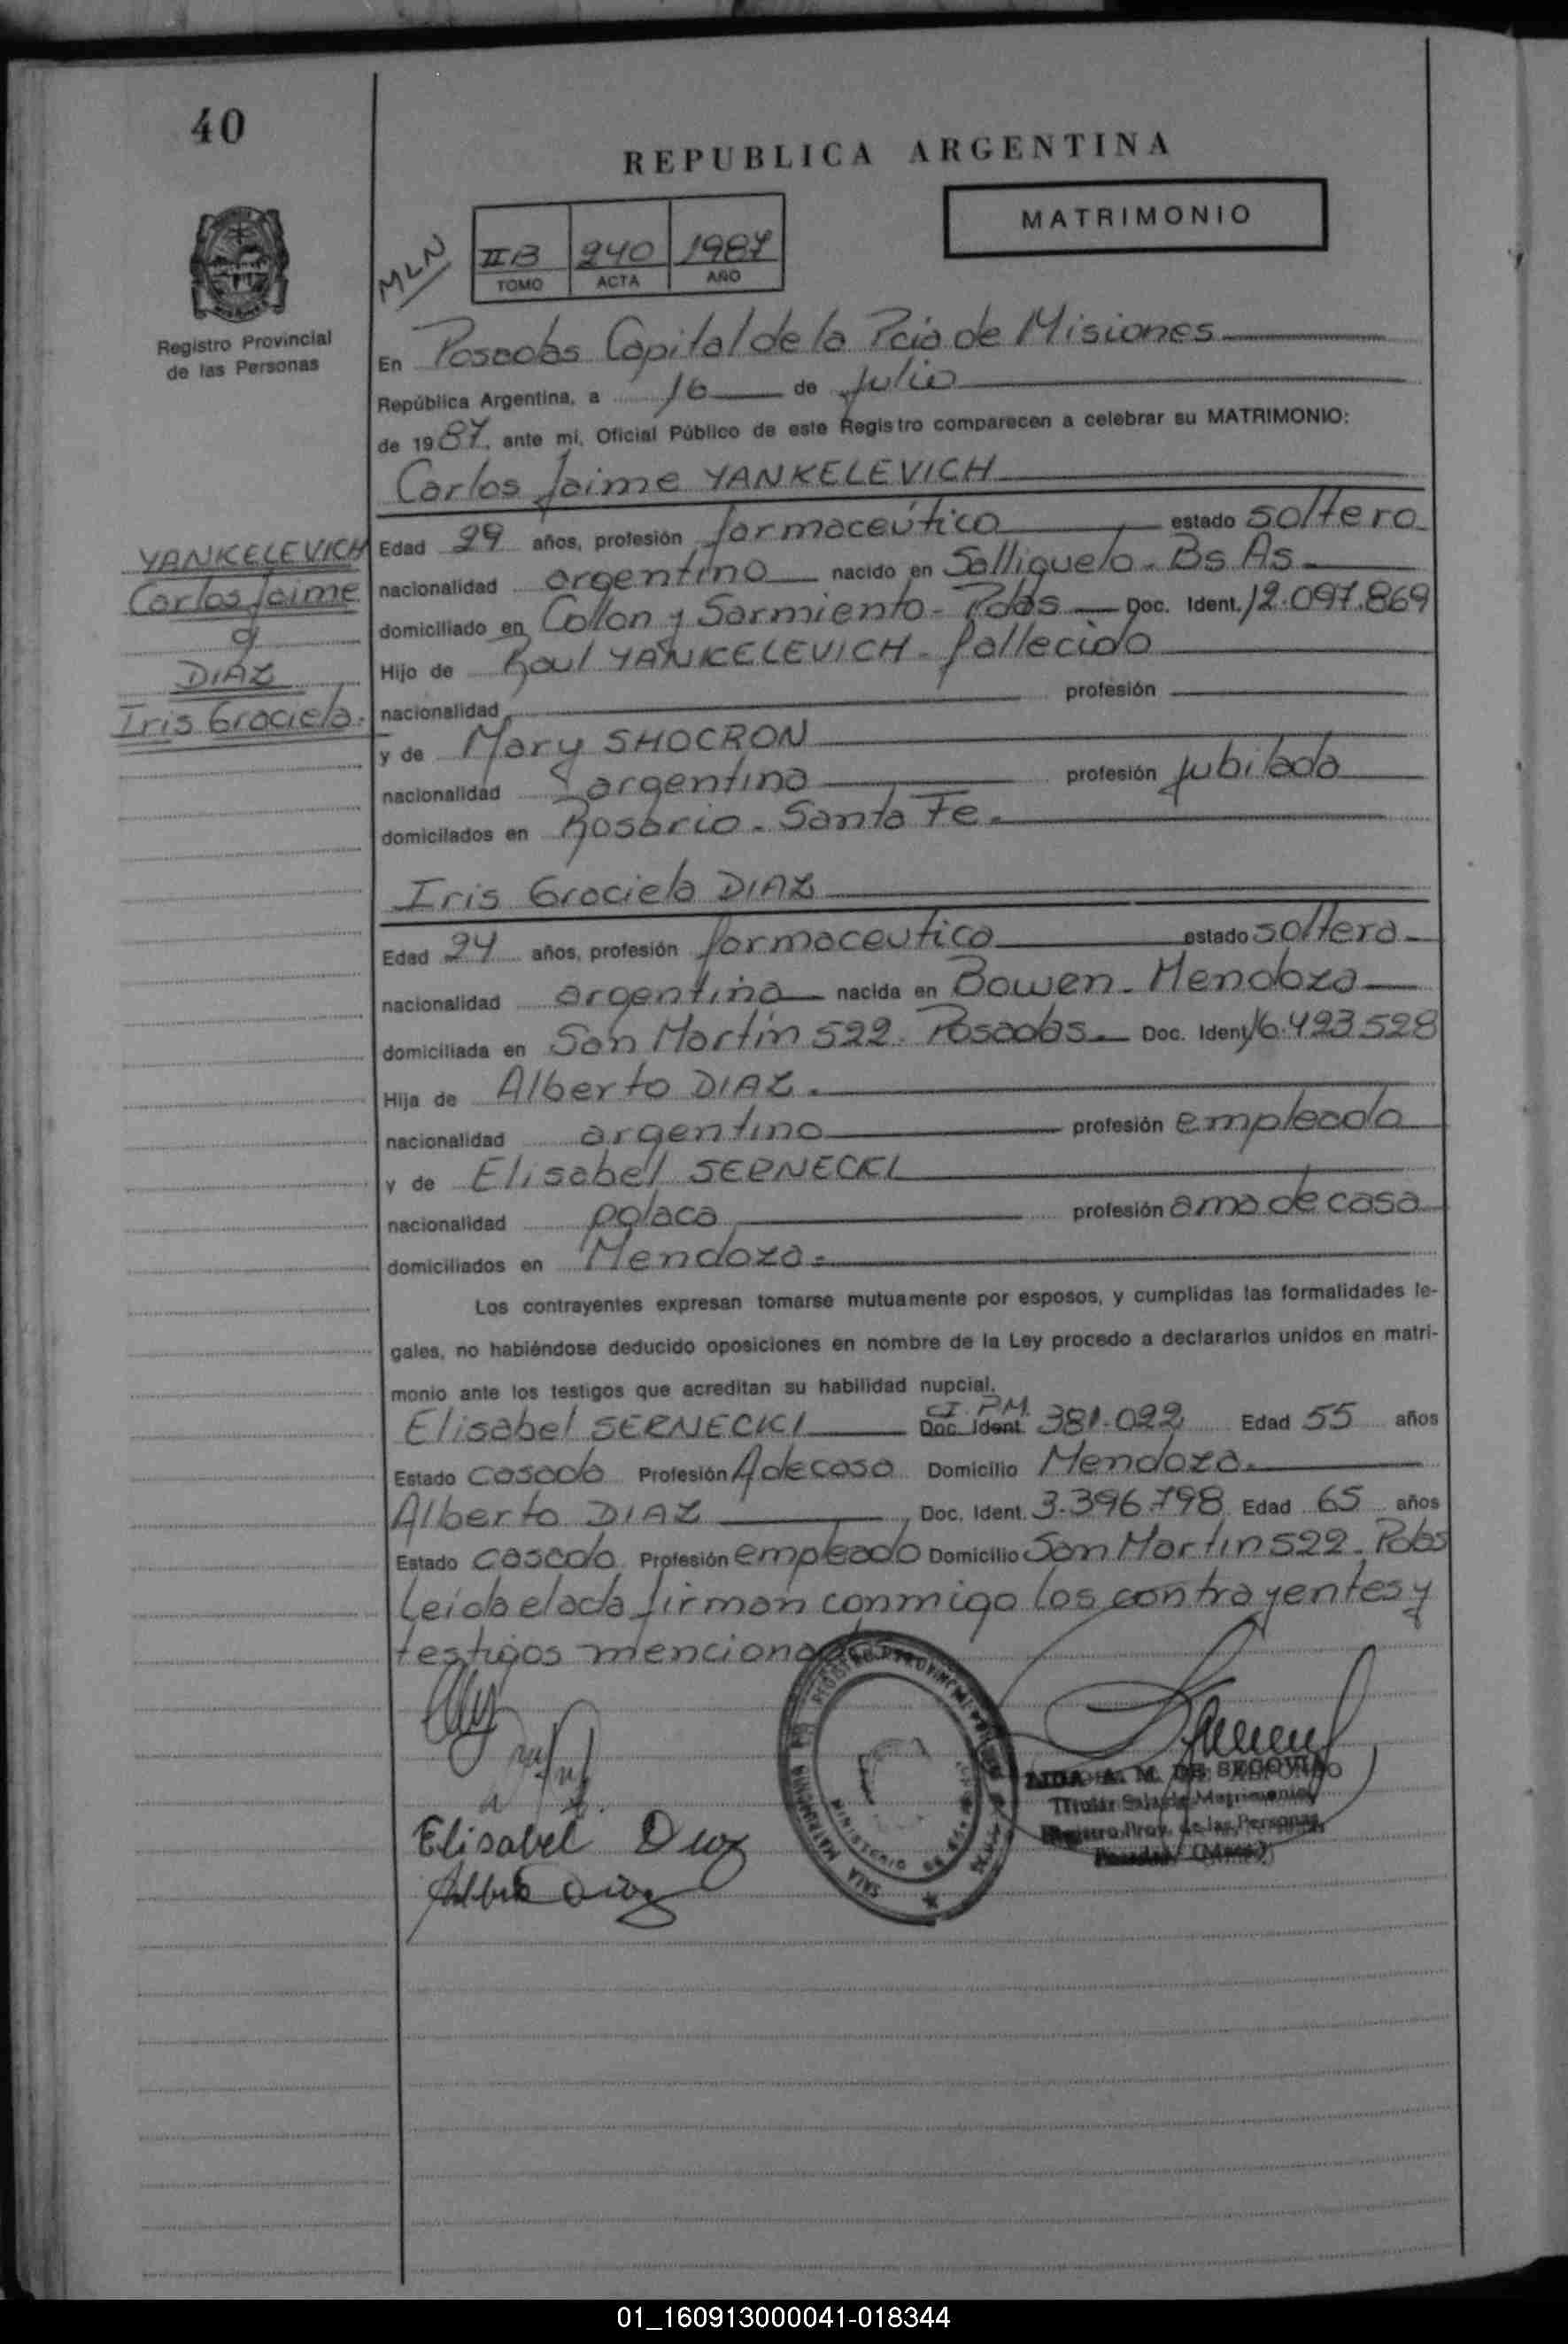 40
REPUBLICA ARGENTINA
MATRIMONIO
MLN
IIB 240 1987
TOMO ACTA AÑO
Registro Provincial
de las Personas
En Posadas Capital de la Pcia de Misiones
República Argentina, a 16 de Julio
de 1987, ante mi, Oficial Público de este Registro comparecen a celebrar su MATRIMONIO:
Carlos Jaime YANKELEVICH
YANKELEVICH
Carlos Jaime
y
DIAZ
Iris Graciela.
Edad 29 años, profesión farmaceútico estado soltero
nacionalidad argentino nacido en Salliquelo. Bs As.
domiciliado en Collon y Sarmiento - Pdas Doc. Ident. 12.097.869
Hijo de Raul YANKELEVICH - fallecido
nacionalidad profesión
y de Mary SHOCRON
nacionalidad argentina profesión jubilada
domicilados en Rosario - Santa Fe.
Iris Graciela DIAZ
Edad 24 años, profesión farmaceutica estado soltera
nacionalidad argentina nacida en Bowen - Mendoza
domiciliada en San Martín 522. Posadas. Doc. Ident. 16.423.528
Hija de Alberto DIAZ.
nacionalidad argentino profesión empleado
y de Elisabel SERNECKI
nacionalidad polaca profesión ama de casa
domiciliados en Mendoza.
Los contrayentes expresan tomarse mutuamente por esposos, y cumplidas las formalidades le-
gales, no habiéndose deducido oposiciones en nombre de la Ley procedo a declararlos unidos en matri-
monio ante los testigos que acreditan su habilidad nupcial.
C.I. P.M.
Elisabel SERNECKI Doc. Ident. 381.022 Edad 55 años
Estado casada Profesión A de casa Domicilio Mendoza.
Alberto DIAZ, Doc. Ident. 3.396.798 Edad 65 años
Estado casado Profesión empleado Domicilio San Martin 522. Pdas
Leída el acta firman conmigo los contrayentes y
testigos mencionados
Elisabel Diaz
Alberto Diaz
REGISTRO PROVINCIAL DE LAS
SALA MATRIMONIO
A. M. DE SEGOVIA
Titular Sala de Matrimonios
Registro Prov. de las Personas
Posadas (Mnes)
01_160913000041-018344